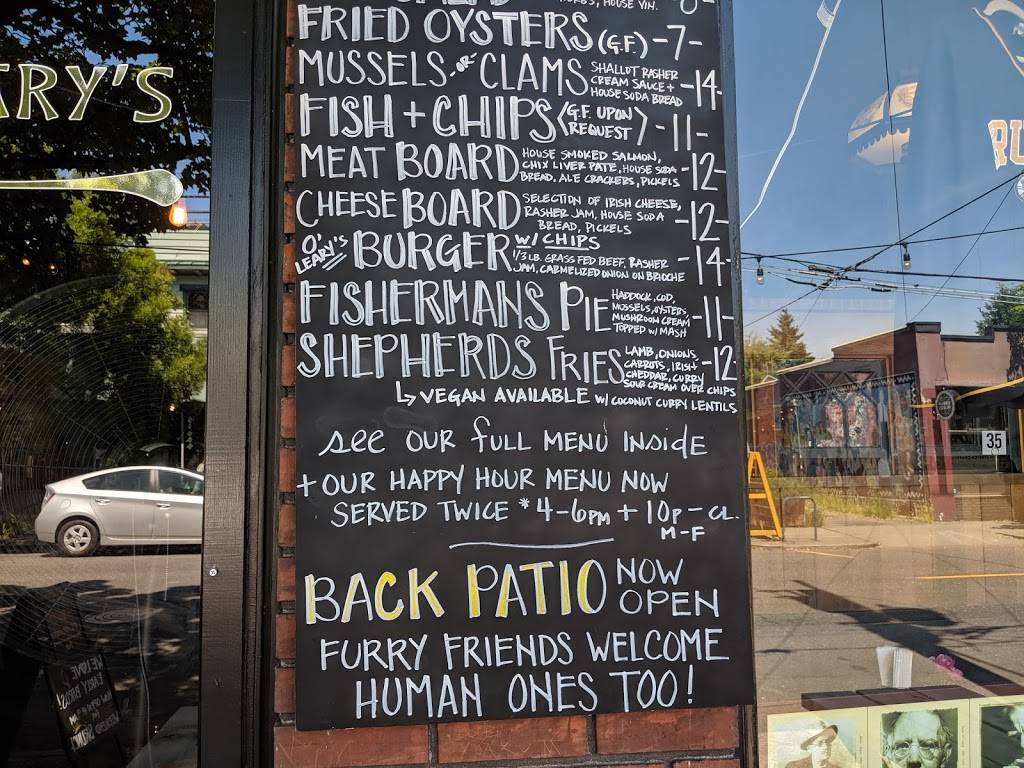 HOUSE VIN.
FRIED OYSTERS (G.F.) -7-
MUSSELS -OR- CLAMS SHALLOT RASHER
CREAM SAUCE +
HOUSE SODA BREAD -14-
FISH + CHIPS (G.F. UPON
REQUEST) -11-
MEAT BOARD HOUSE SMOKED SALMON,
CHIX LIVER PATE, HOUSE SODA
BREAD, ALE CRACKERS, PICKELS -12-
CHEESE BOARD SELECTION OF IRISH CHEESE,
RASHER JAM, HOUSE SODA
BREAD, PICKELS -12-
O'LEARY'S BURGER W/ CHIPS
1/3 LB. GRASS FED BEEF, RASHER
JAM, CARMELIZED ONION ON BRIOCHE -14-
FISHERMANS PIE HADDOCK, COD,
MUSSELS, OYSTERS,
MUSHROOM CREAM
TOPPED W/ MASH -11-
SHEPHERDS FRIES LAMB, ONIONS,
CARROTS, IRISH
CHEDDAR, CURRY
SOUR CREAM OVER CHIPS -12-
↳ VEGAN AVAILABLE W/ COCONUT CURRY LENTILS
see OUR full MENU INSIDE
+ OUR HAPPY HOUR MENU NOW
SERVED TWICE * 4-6PM + 10P - CL.
M-F
BACK PATIO NOW
OPEN
FURRY FRIENDS WELCOME
HUMAN ONES TOO!
ARY'S
RU
35